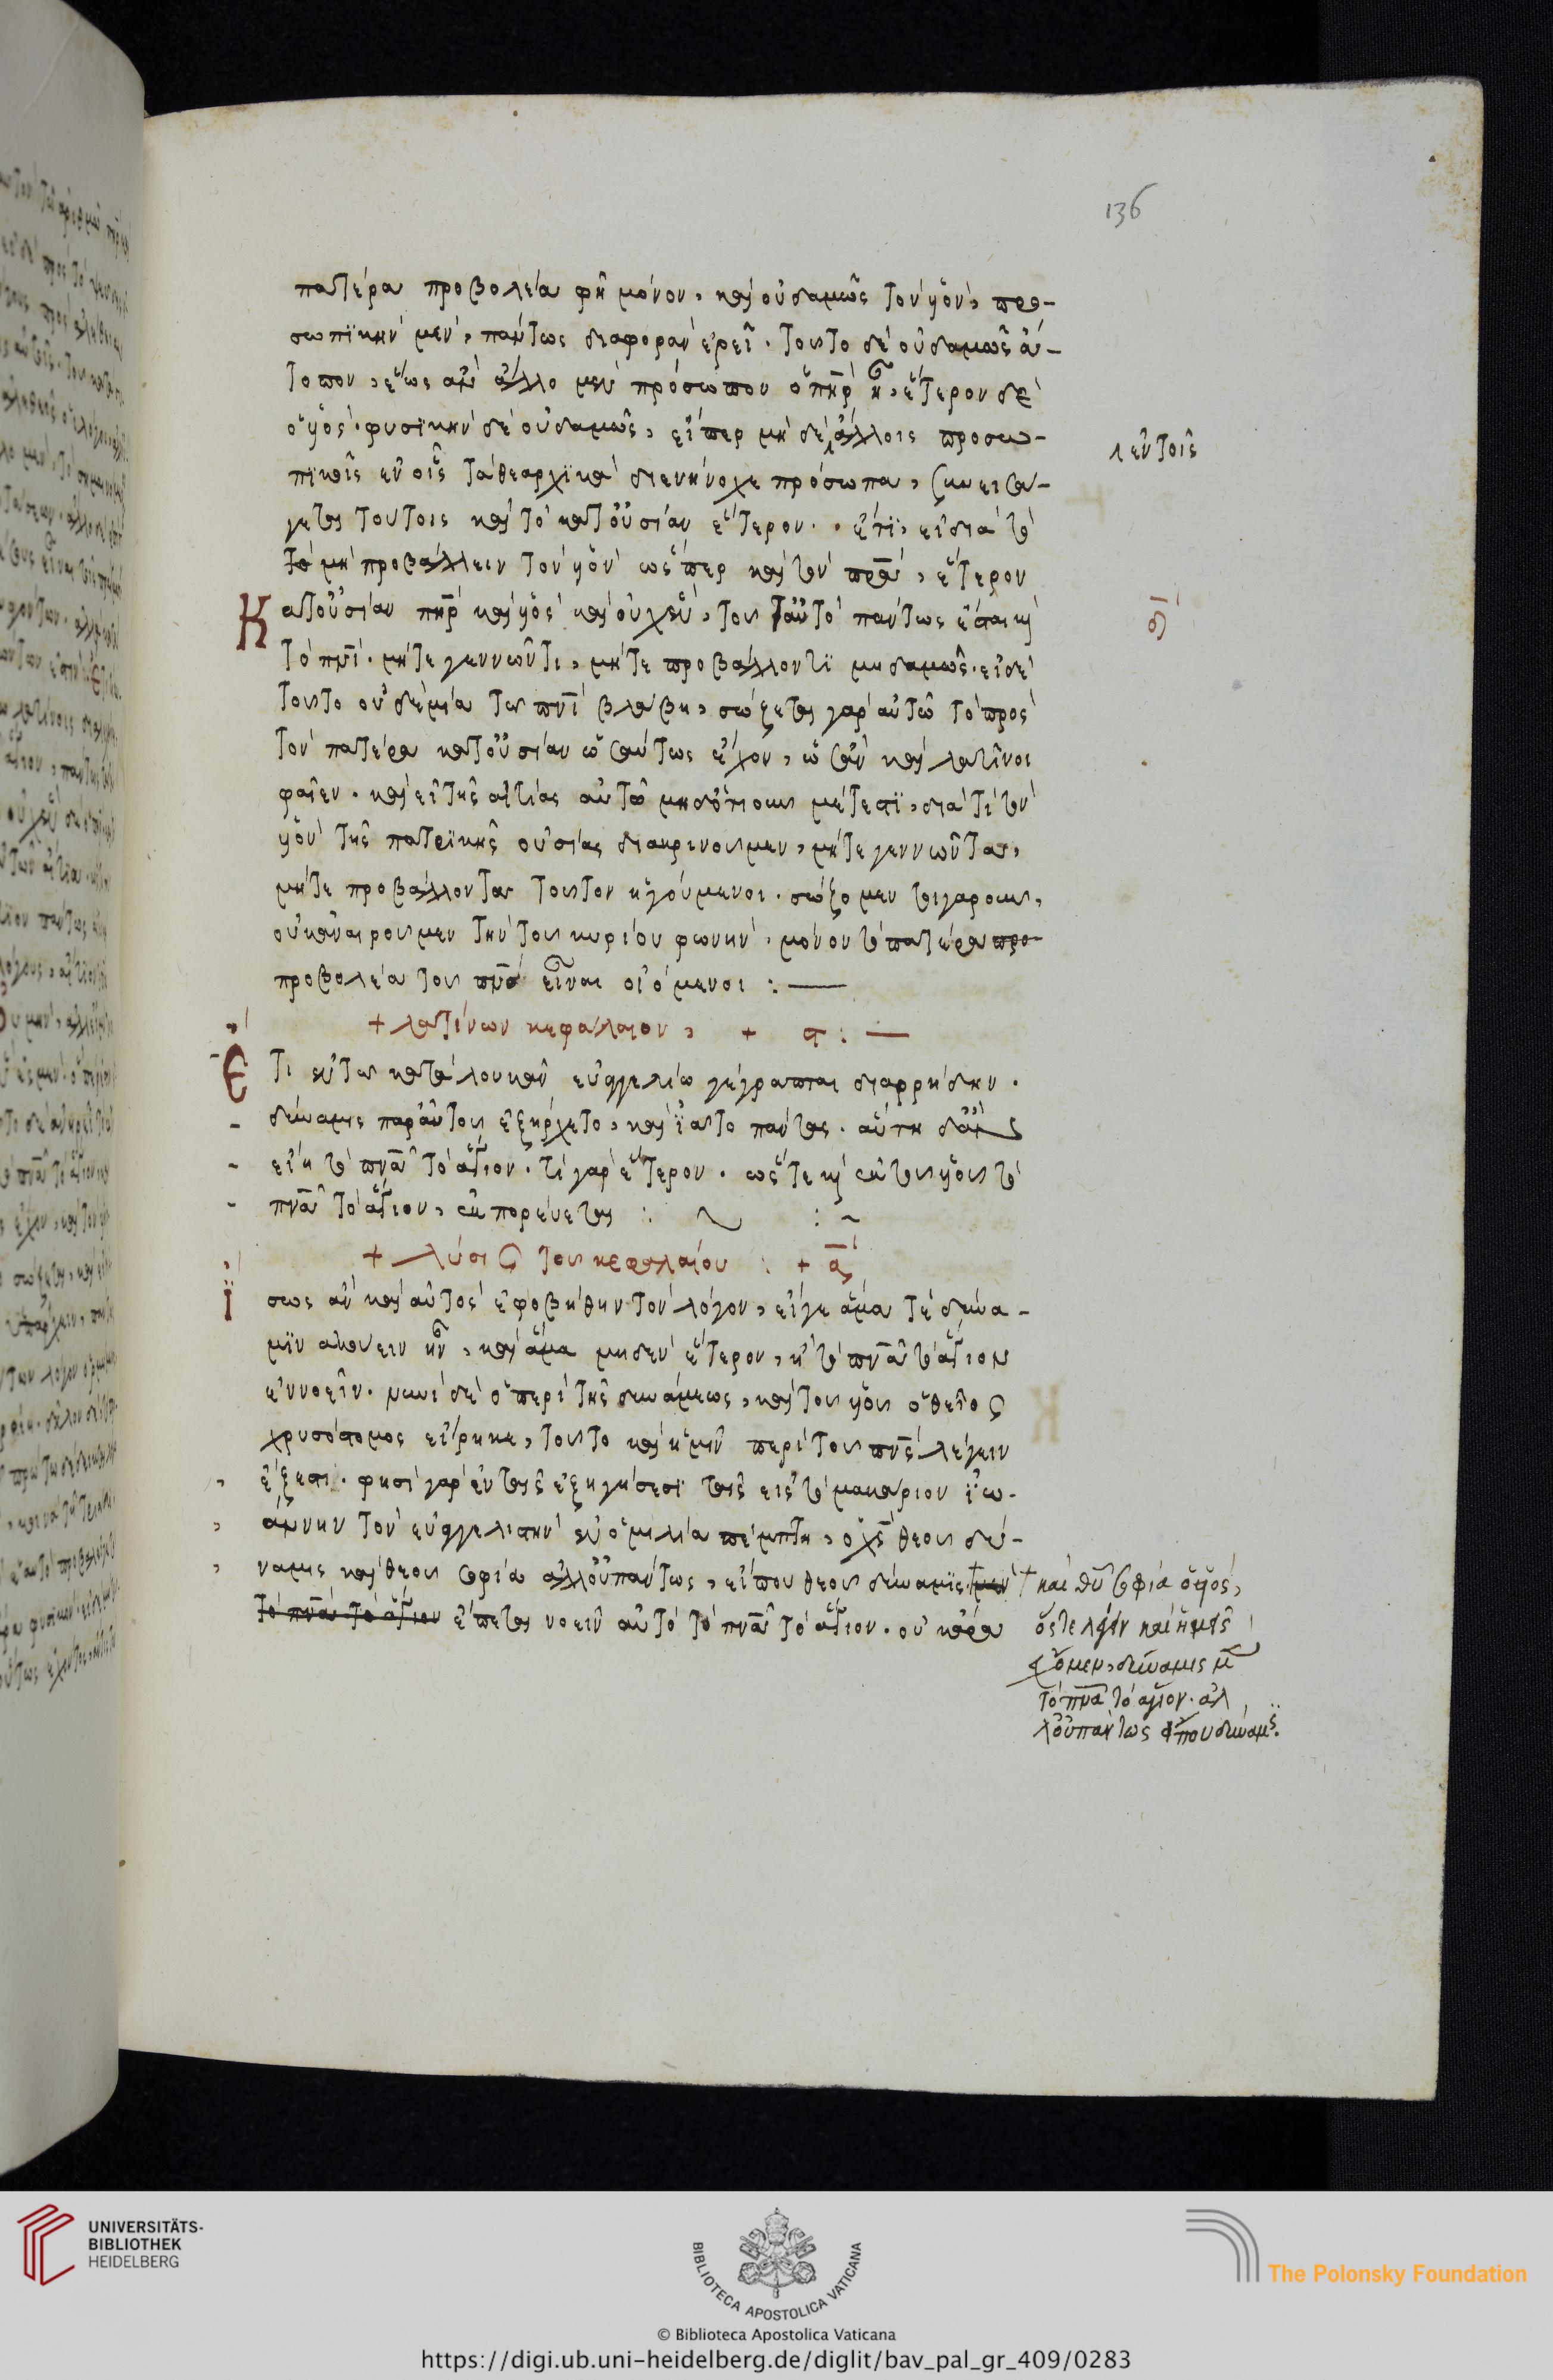 136
πατέρα προβολέα φῆ μόνον, καὶ οὐδαμῶς τὸν υἱὸν, προ-
σωπϊκὴν μὲν, πάντως διαφορὰν ἐρεῖ. τοῦτο δὲ οὐδαμῶς ἄ-
τοπον, ἕως ἂν ἄλλο μὲν πρόσωπον ὁ πηρ ἦ, ἕτερον δὲ
ὁ υἱός. φυσϊκὴν δὲ οὐδαμῶς, εἴπερ μὴ δὲ ἄλλοις προσω-
λ ἐν τοῖς
πϊκοῖς ἐν οἷς τὰ θεαρχϊκὰ διενήνοχε πρόσωπα, συνεισά-
γεται τούτοις καὶ τὸ κατ' οὐσίαν ἕτερον. ἔτϊ, εἰ διὰ τὸ
τὸ μὴ προβάλλειν τὸν υἱὸν ὥσπερ καὶ τὸν πρα, ἕτερον
κατ' οὐσίαν πηρ καὶ υἱὸς καὶ οὐχ ἓν, τοῦ ταὐτὸ πάντως ἔσται καὶ
τὸ πνι. μήτε γεννῶντι, μήτε προβάλλοντϊ μηδαμῶς. εἰ δὲ
τοῦτο οὐδεμία τῶ πνι βλάβη, σώζεται γὰρ αὐτῶ τὸ πρὸς
τὸν πατέρα κατ' οὐσίαν ὡσαύτως ἔχον, ὡς ἂν καὶ λατῖνοι
φαῖεν. καὶ εἰ τῆς αἰτίας αὐτῶ μηδότιουν μέτεστϊ, διὰ τί τὸν
υἱὸν τῆς πατρϊκῆς οὐσίας διακρίνουμεν, μήτε γεννῶντα,
μήτε προβάλλοντα τοῦτον ἡγούμενοι. σώζομεν τοιγαροῦν,
οὐκ ἀναιροῦμεν τὴν τοῦ κυρίου φωνὴν, μόνον τὸ πατέρα προ-
προβολέα τοῦ πνσ εἶναι οἰόμενοι :—
+ λατίνων κεφάλαιον, +
Ἔτι ἐν τῶ κατὰ λουκᾶν εὐαγγελίω γέγραπται διαρρήδην.
δύναμις παρ' αὐτοῦ ἐξήρχετο, καὶ ϊᾶτο πάντας. αὕτη δ' ἂν
εἴη τὸ πνα τὸ ἅγιον. τί γὰρ ἕτερον. ὥστε καὶ ἐκ τοῦ υἱοῦ τὸ
πνα τὸ ἅγιον, ἐκπορεύεται :
+ λύσις τοῦ κεφαλαίου : +
Ϊσως ἂν καὶ αὐτὸς ἐφοβήθην τὸν λόγον, εἴγε ἅμα τὲ δύνα-
μϊν ἀκούειν ἦν, καὶ ἅμα μηδὲν ἕτερον, ἢ τὸ πνα τὸ ἅγιον
ἐννοεῖν. νυνὶ δὲ ὁ περὶ τῆς δυνάμεως, καὶ τοῦ υἱοῦ ὁ θεῖος
χρυσόστομος εἴρηκε, τοῦτο καὶ ἡμῖν περὶ τοῦ πνς λέγειν
ἔξεστι. φησὶ γὰρ ἐν ταῖς ἐξηγήσεσϊ ταῖς εἰς τὸ μακάριον ϊω-
άννην τὸν εὐαγγελιστὴν ἐν ὁμιλία πέμπτη, ὁ χς θεοῦ δύ-
ναμις καὶ θεοῦ σοφία ἀλλ' οὐ πάντως, εἴπου θεοῦ δύναμϊς μὲν
+ καὶ θυ σοφία ὁ υἱός,
τὸ πνα τὸ ἅγιον ἕπεται νοεῖν αὐτὸ τὸ πνα τὸ ἅγιον. οὐκ ἄρα
ὥστε λέγειν καὶ ἡμεῖς
ἔχομεν, δύναμις μὲν
τὸ πνα τὸ ἅγιον. ἀλ
λ' οὐ πάντως εἴπου δύναμις.
UNIVERSITÄTS-
BIBLIOTHEK
HEIDELBERG
BIBLIOTECA APOSTOLICA VATICANA
The Polonsky Foundation
© Biblioteca Apostolica Vaticana
https://digi.ub.uni-heidelberg.de/diglit/bav_pal_gr_409/0283